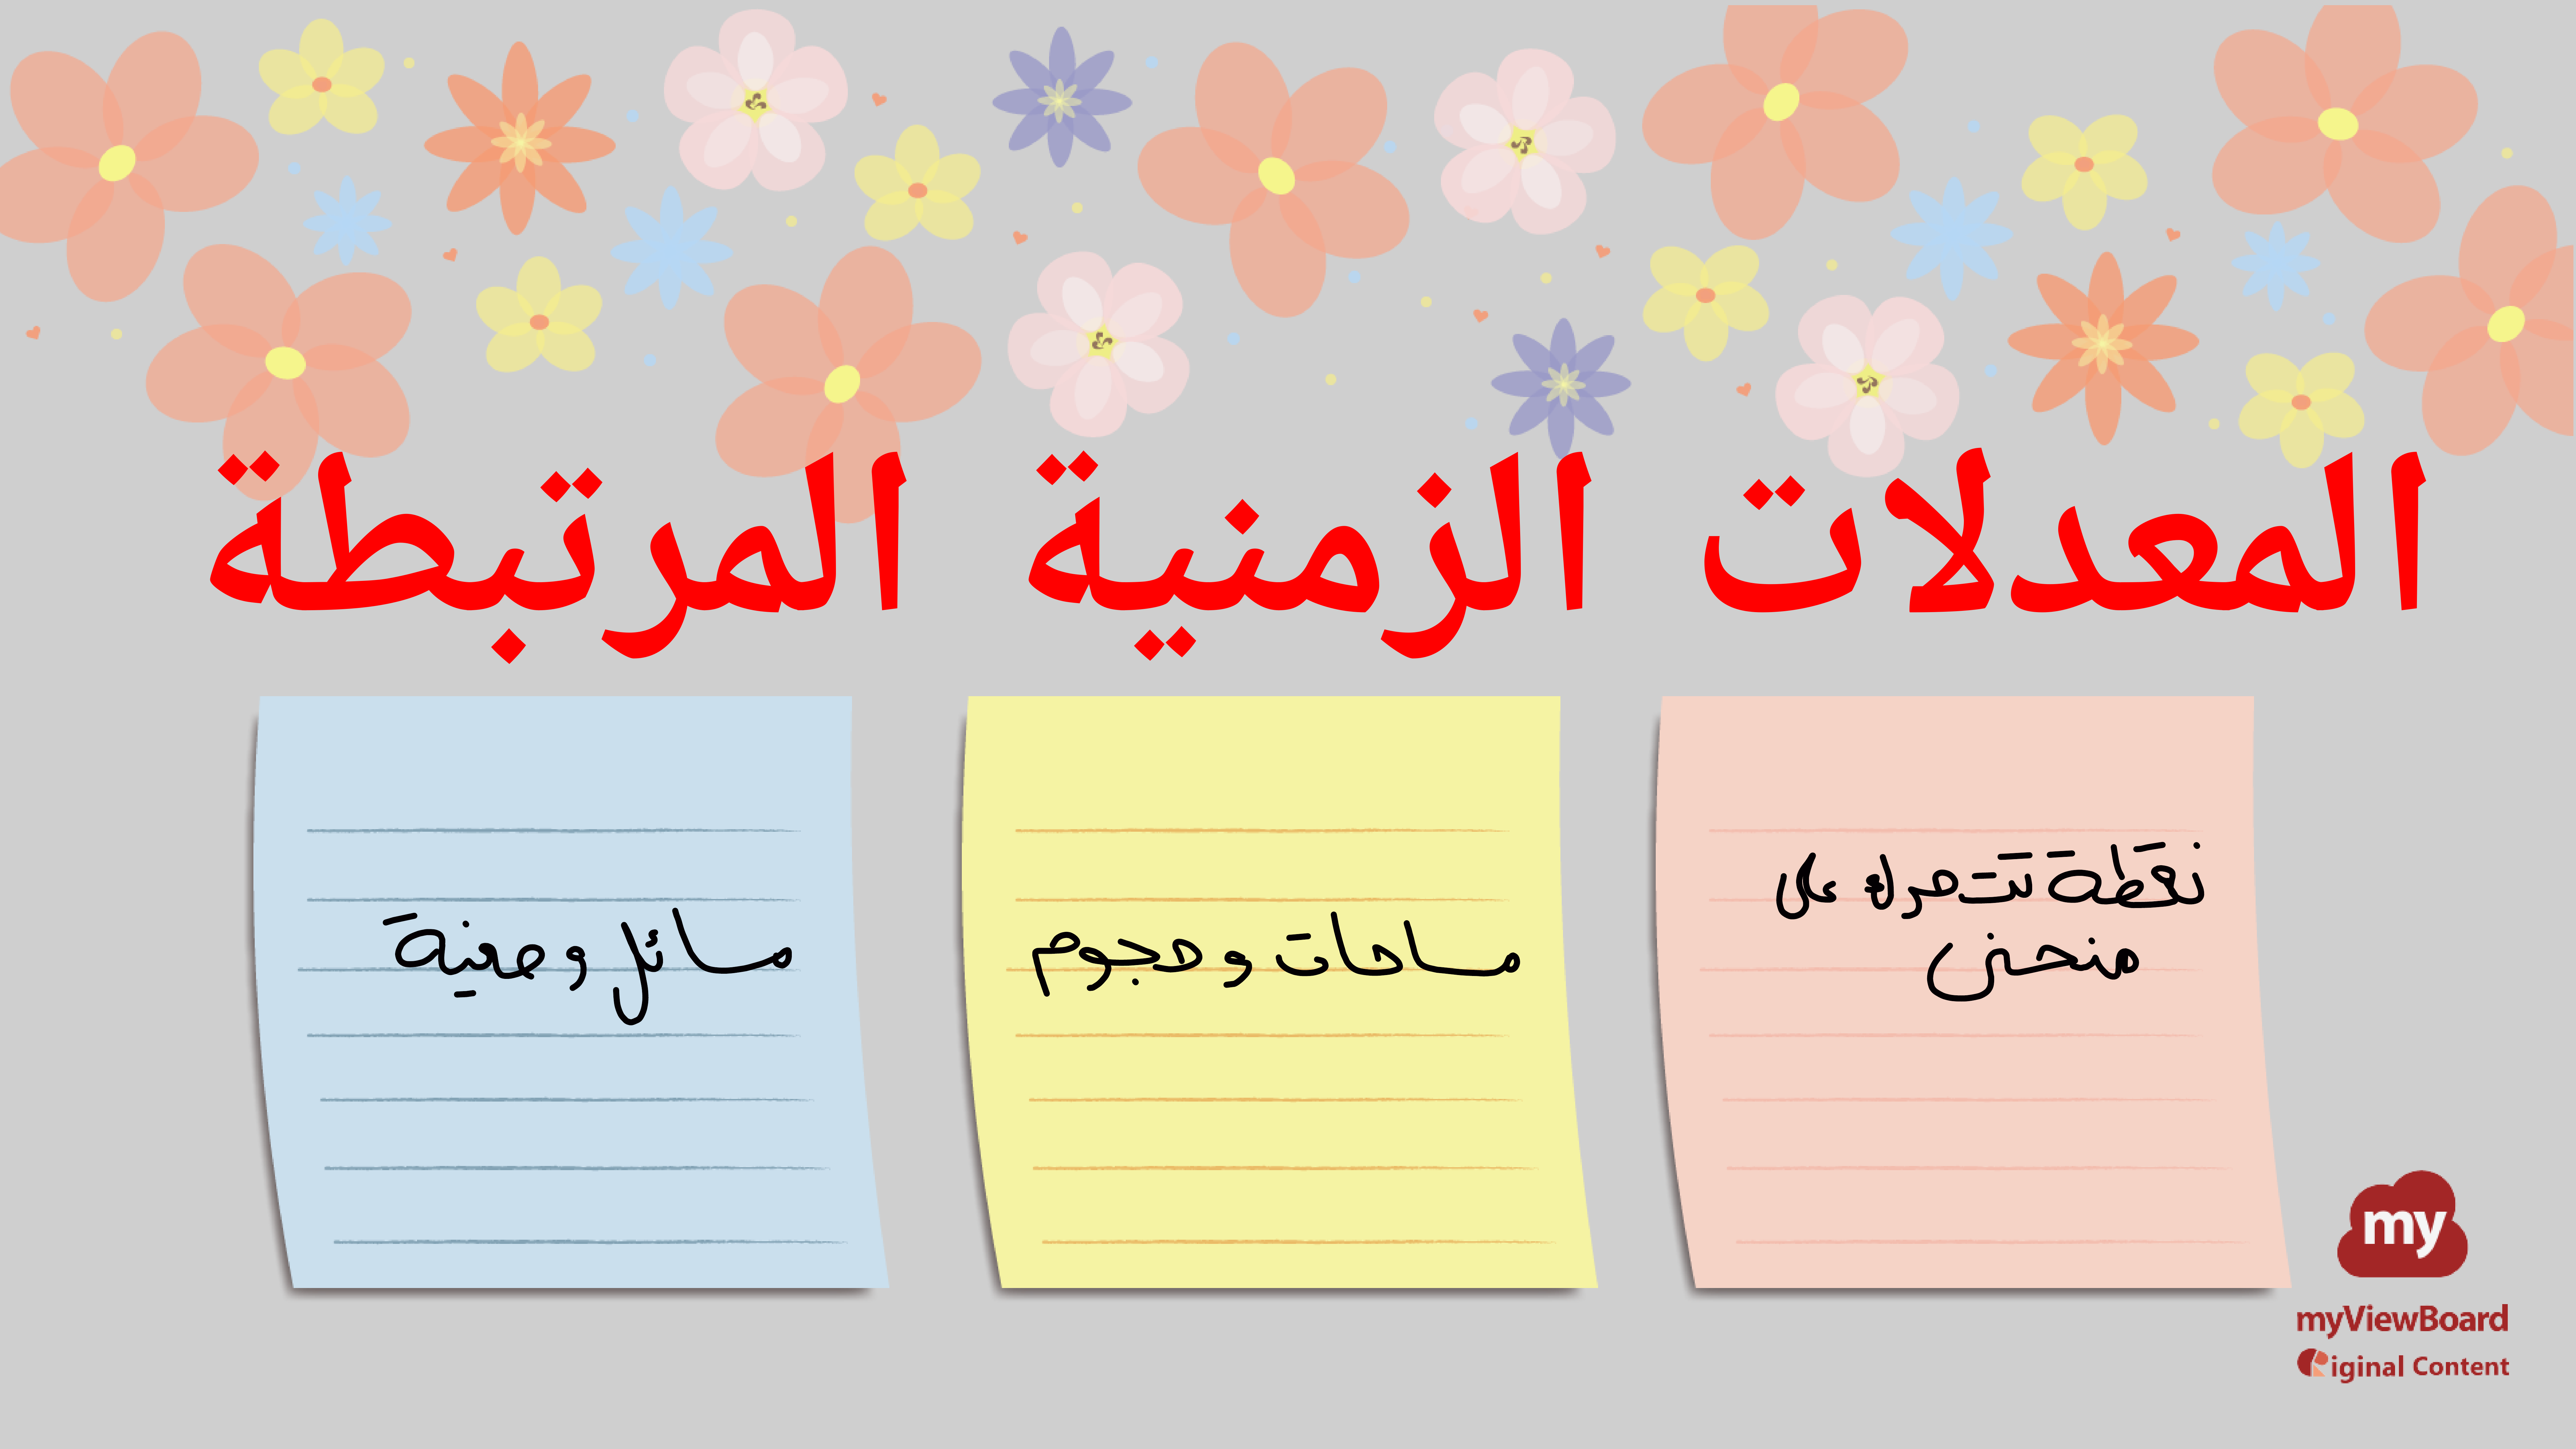 المعدلات الزمنية المرتبطة
نقطة تتحرك على
منحنى
مساحات و حجوم
مسائل وصفية
my
myViewBoard
Original Content